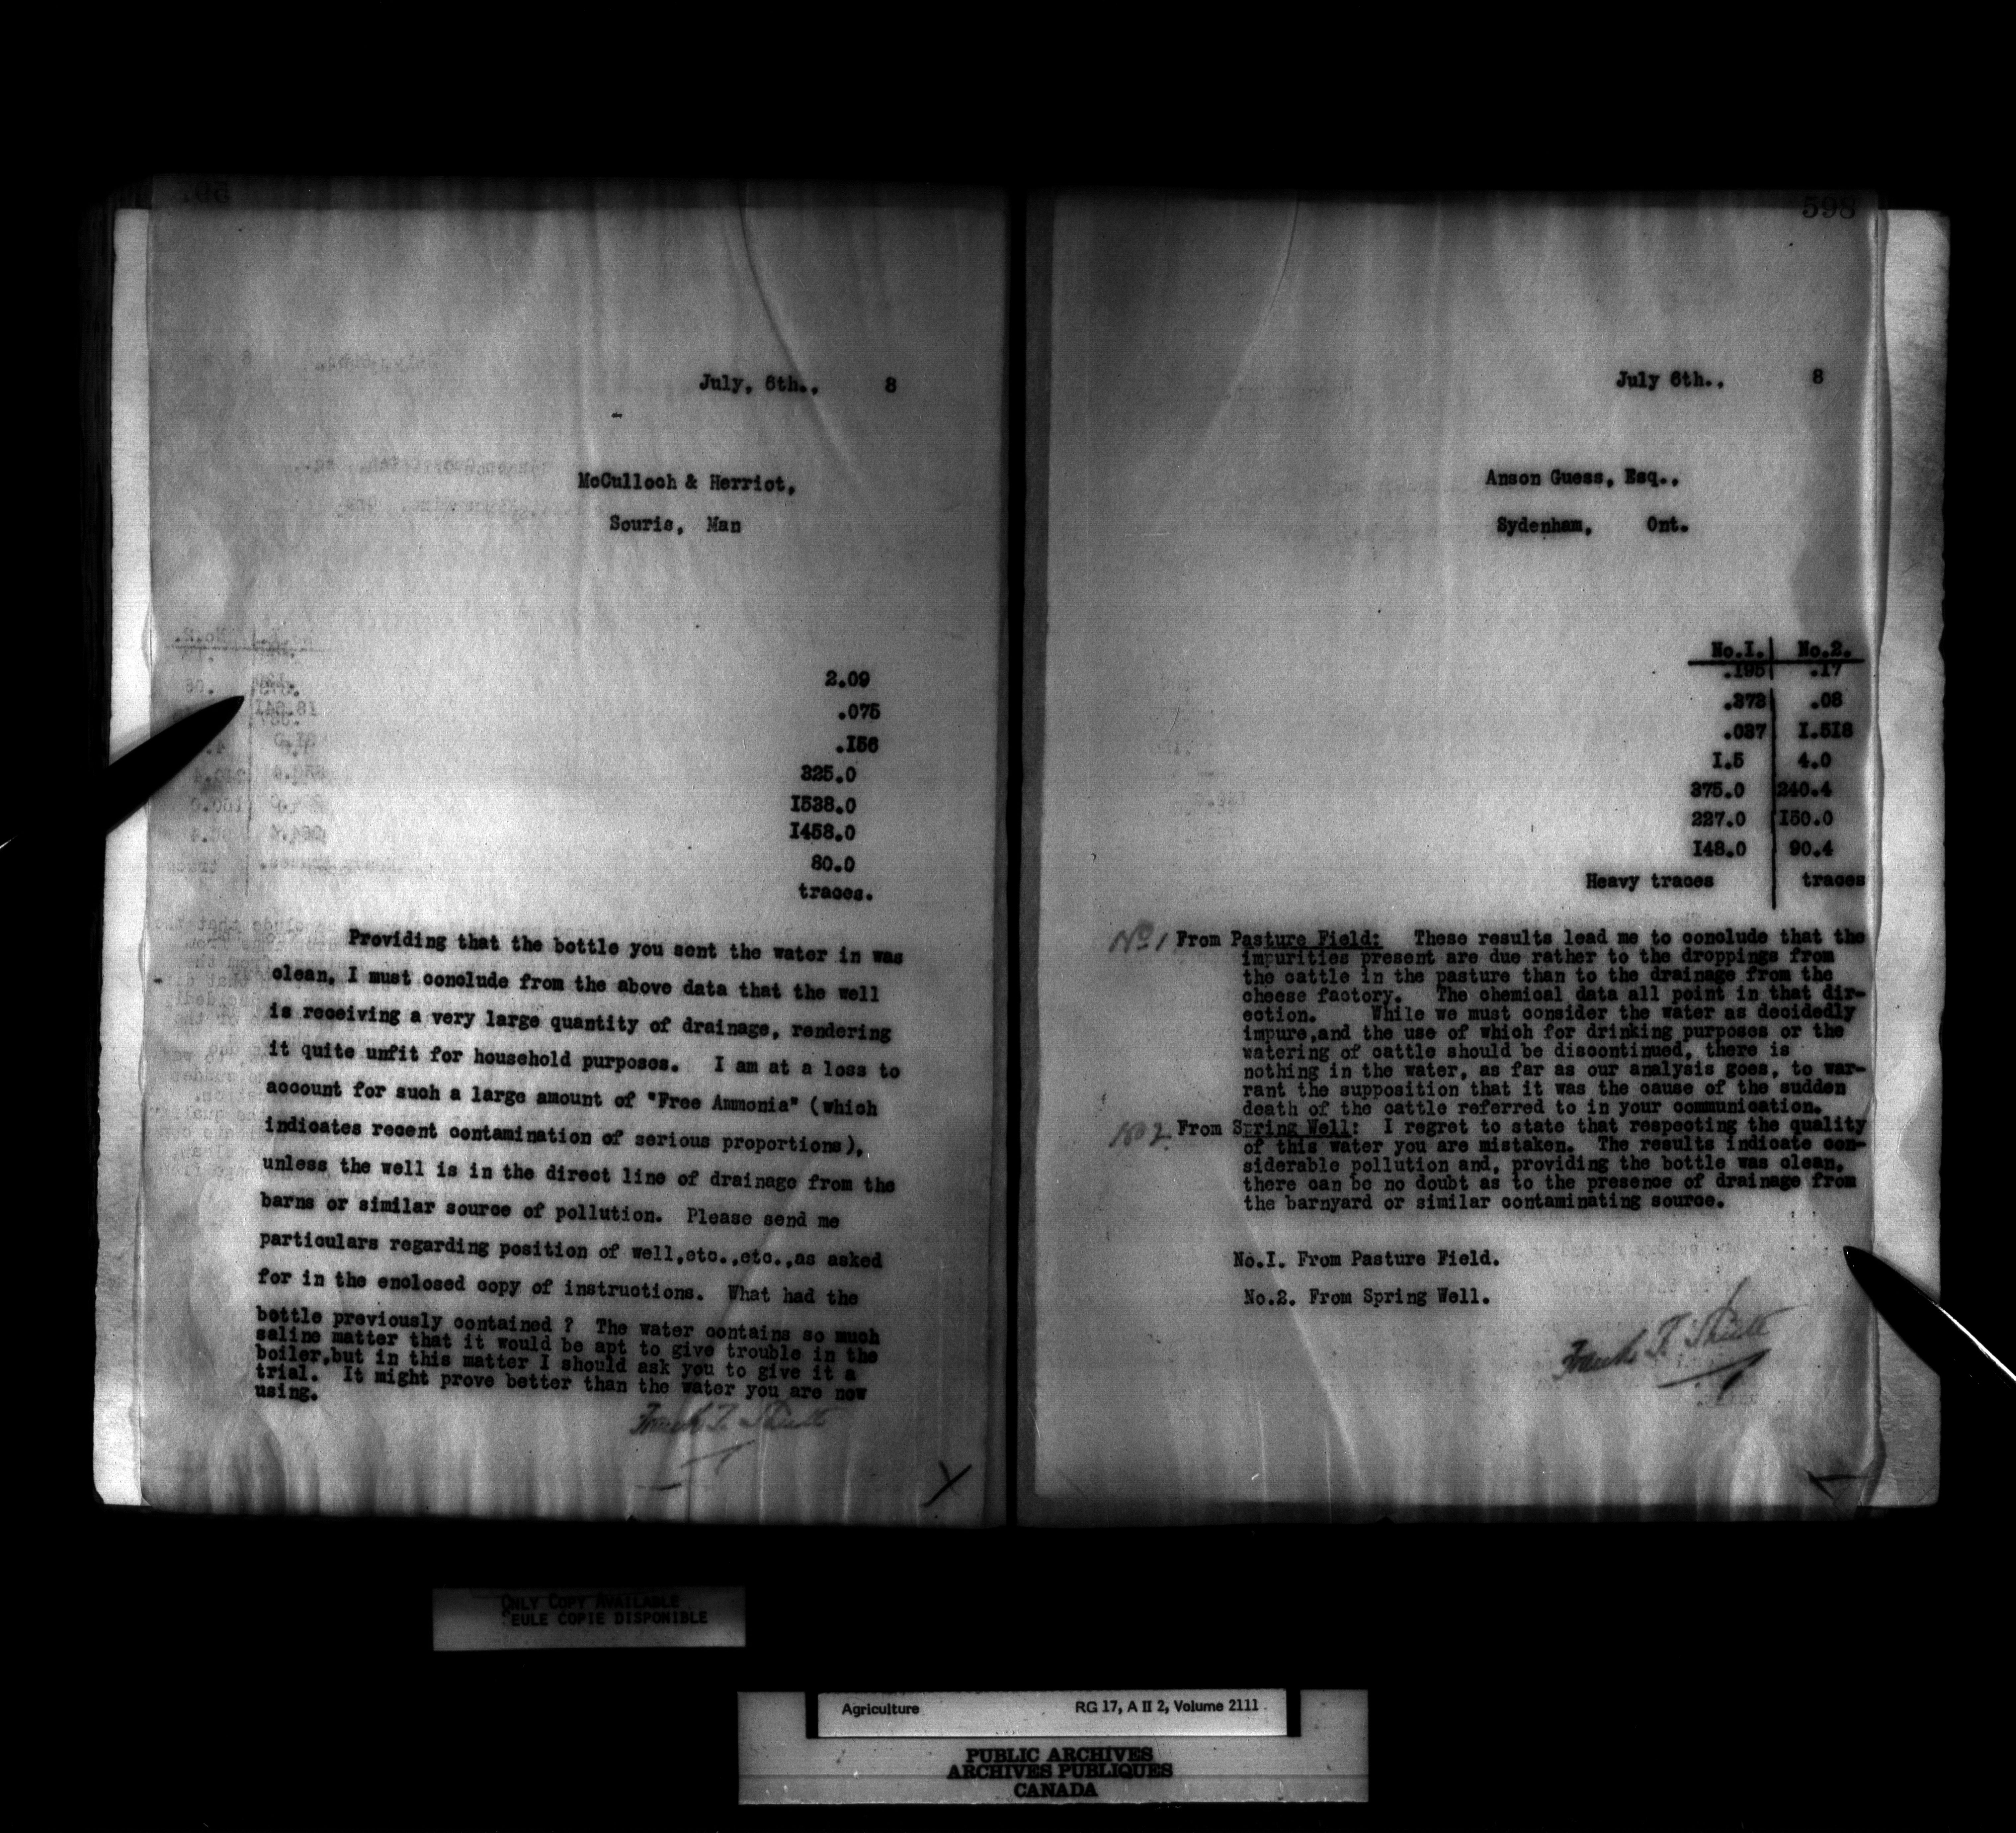 July, 6th., 8
McCulloch & Herriot,
Souris, Man
2.09
.075
.I56
325.0
I538.0
I458.0
80.0
traces.
Providing that the bottle you sent the water in was
clean, I must conclude from the above data that the well
is receiving a very large quantity of drainage, rendering
it quite unfit for household purposes. I am at a loss to
account for such a large amount of "Free Ammonia" (which
indicates recent contamination of serious proportions),
unless the well is in the direct line of drainage from the
barns or similar source of pollution. Please send me
particulars regarding position of well,etc.,etc.,as asked
for in the enclosed copy of instructions. What had the
bottle previously contained ? The water contains so much
saline matter that it would be apt to give trouble in the
boiler,but in this matter I should ask you to give it a
trial. It might prove better than the water you are now
using.
Frank T. Shutt
598
July 6th., 8
Anson Guess, Esq.,
Sydenham, Ont.
No.I. No.2.
.I95 .I7
.373 .08
.037 I.5I8
I.5 4.0
375.0 240.4
227.0 I50.0
I48.0 90.4
Heavy traces traces
No 1 From Pasture Field: These results lead me to conclude that the
impurities present are due rather to the droppings from
the cattle in the pasture than to the drainage from the
cheese factory. The chemical data all point in that dir-
ection. While we must consider the water as decidedly
impure,and the use of which for drinking purposes or the
watering of cattle should be discontinued, there is
nothing in the water, as far as our analysis goes, to war-
rant the supposition that it was the cause of the sudden
death of the cattle referred to in your communication.
No 2 From Spring Well: I regret to state that respecting the quality
of this water you are mistaken. The results indicate con-
siderable pollution and, providing the bottle was clean,
there can be no doubt as to the presence of drainage from
the barnyard or similar contaminating source.
No.I. From Pasture Field.
No.2. From Spring Well.
Frank T. Shutt
ONLY COPY AVAILABLE
SEULE COPIE DISPONIBLE
Agriculture RG 17, A II 2, Volume 2111
PUBLIC ARCHIVES
ARCHIVES PUBLIQUES
CANADA